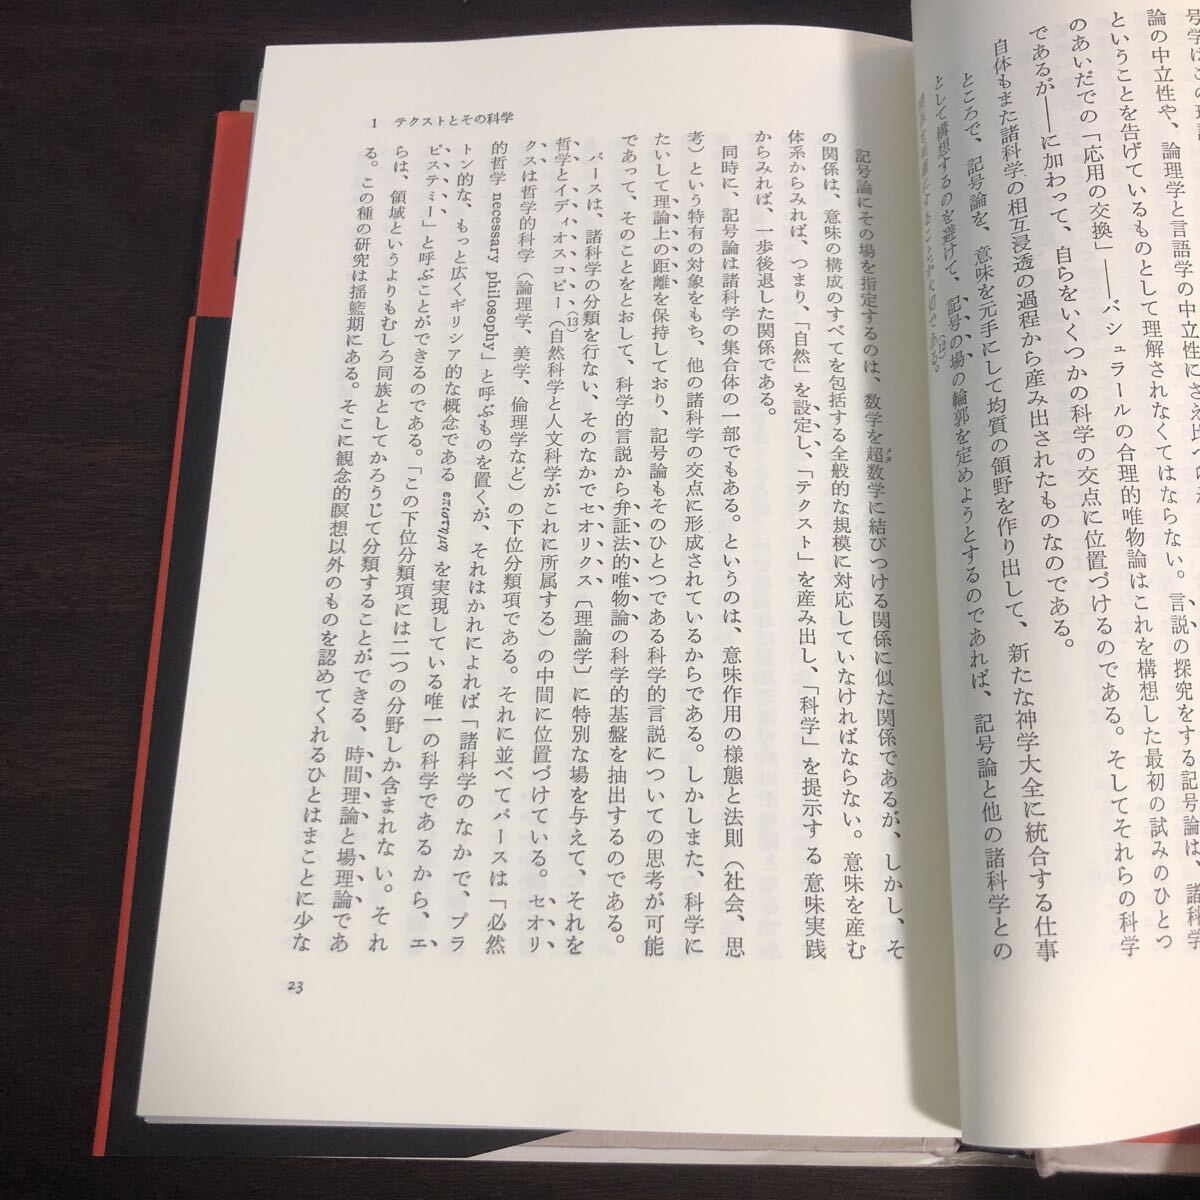 号学はこの理
論の中立性や、論理学と言語学の中立性にさえ比べ
ということを告げているものとして理解されなくてはならない。言説の探究をする記号論は、諸科学
のあいだでの「応用の交換」——バシュラールの合理的唯物論はこれを構想した最初の試みのひとつ
であるが——に加わって、自らをいくつかの科学の交点に位置づけるのである。そしてそれらの科学
自体もまた諸科学の相互浸透の過程から産み出されたものなのである。
ところで、記号論を、意味を元手にして均質の領野を作り出して、新たな神学大全に統合する仕事
として構想するのを避けて、記号の場の輪郭を定めようとするのであれば、記号論と他の諸科学との
である。(12)
記号論にその場を指定するのは、数学を超数学に結びつける関係に似た関係であるが、しかし、そ
メタ
の関係は、意味の構成のすべてを包括する全般的な規模に対応していなければならない。意味を産む
体系からみれば、つまり、「自然」を設定し、「テクスト」を産み出し、「科学」を提示する意味実践
からみれば、一歩後退した関係である。
同時に、記号論は諸科学の集合体の一部でもある。というのは、意味作用の様態と法則(社会、思
考)という特有の対象をもち、他の諸科学の交点に形成されているからである。しかしまた、科学に
たいして理論上の距離を保持しており、記号論もそのひとつである科学的言説についての思考が可能
であって、そのことをとおして、科学的言説から弁証法的唯物論の科学的基盤を抽出するのである。
パースは、諸科学の分類を行ない、そのなかでセオリクス〔理論学〕に特別な場を与えて、それを
哲学とイディオスコピー(13)(自然科学と人文科学がこれに所属する)の中間に位置づけている。セオリ
クスは哲学的科学(論理学、美学、倫理学など)の下位分類項である。それに並べてパースは「必然
的哲学 necessary philosophy」と呼ぶものを置くが、それはかれによれば「諸科学のなかで、プラ
トン的な、もっと広くギリシア的な概念である επιστημη を実現している唯一の科学であるから、エ
ピステミーと呼ぶことができるのである。「この下位分類項には二つの分野しか含まれない。それ
らは、領域というよりもむしろ同族としてかろうじて分類することができる、時間理論と場理論であ
る。この種の研究は揺籃期にある。そこに観念的瞑想以外のものを認めてくれるひとはまことに少な
1 テクストとその科学
23